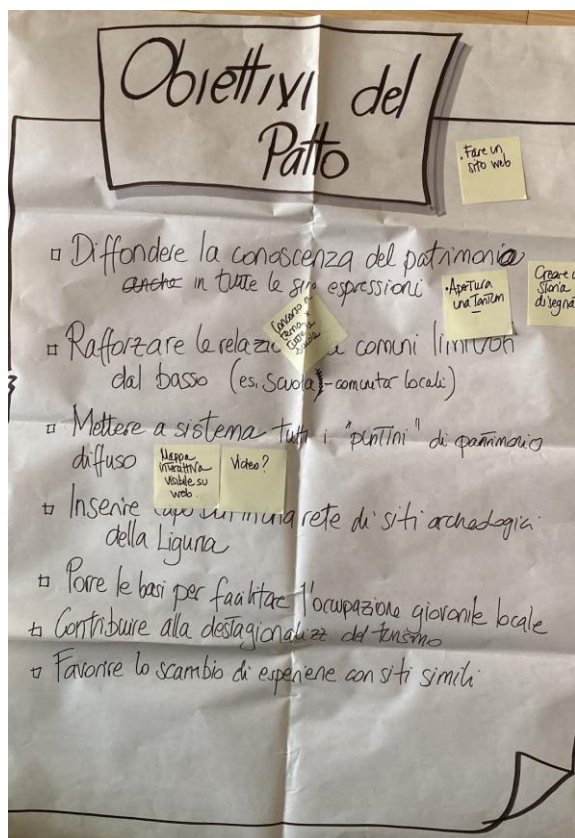 Obiettivi del
Patto
• Fare un
sito web
Diffondere la conoscenza del patrimonio
anche in tutte le sue espressioni
• Apertura
una Tantum
Creare
storia
disegna
Concorso a
tema x
scuole
Rafforzare le relazio comuni limitrofi
dal basso (es. scuola)-comunità locali)
Mettere a sistema tutti i "puntini" di patrimonio
diffuso
Mappa
interattiva
visibile su
web.
Video?
Inserire una rete di siti archeologici
della Liguria
Porre le basi per facilitare l'occupazione giovanile locale
Contribuire alla destagionalizz del turismo
Favorire lo scambio di esperienze con siti simili